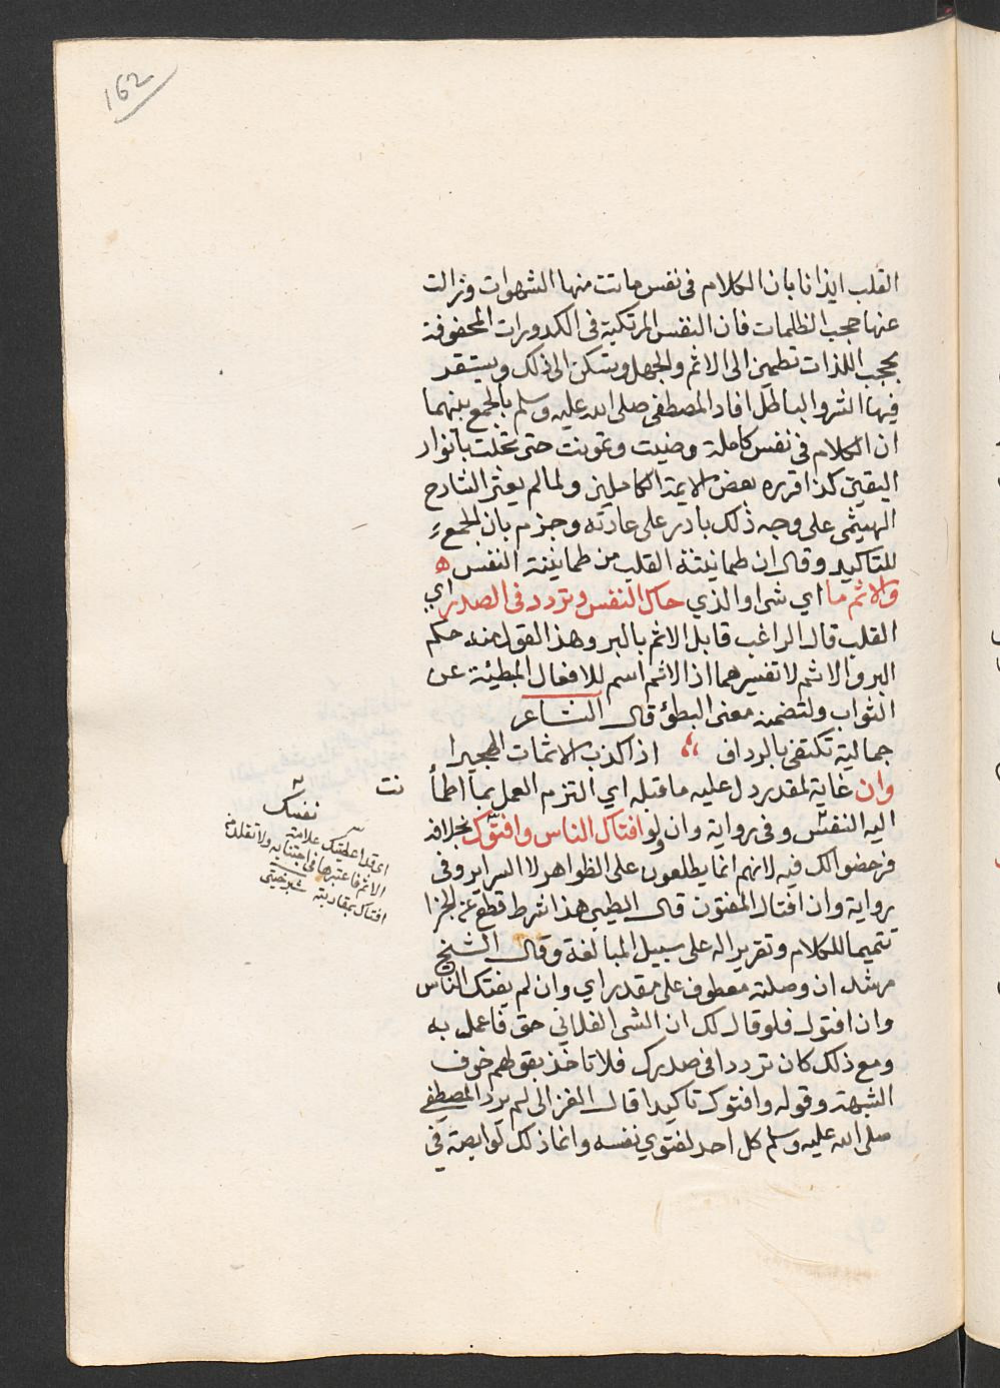 162
القلب ايذانا بان الكلام فى نفس ماتت منها الشهوات وزالت
عنها حجب الظلمات فان النفس المرتكبة فى الكدورات المحفوفة
بحجب اللذات تطمئن الى الاثم والجهل وتسكن الى ذلك ويستقر
فيها الشر والباطل افاد المصطفى صلى الله عليه وسلم بالجمع بينهما
ان الكلام فى نفس كاملة رضيت وتمرنت حتى تحلت بانوار
اليقين كذا قرره بعض الايمة الكاملين ولما لم يعثر الشارح
الهيثمى على وجه ذلك بادر على عادته وجزم بان الجمع
للتاكيد وقال ان طمانينة القلب من طمانينة النفس ه
والاثم ما اي شى او الذي حاك النفس وتردد فى الصدر اي
القلب قال الراغب قابل الاثم بالبر وهذا القول منه حكم
البر والاثم لا تفسيرهما اذ الاثم اسم للافعال المبطئة عن
الثواب ولتضمنه معنى البطؤ قال الشاعر
جمالية تكتفى بالرداف اذا كذب الاثمات الهجيرا
وان غاية لمقدر دل عليه ما قبله اي التزم العمل بما اطمأنت
اليه النفس وفى رواية وان ولو افتاك الناس وافتوك بخلافه
فرخصوا لك فيه لانهم انما يطلعون على الظواهر لا السراير وفى
رواية وان افتاك المفتون قال الطيبى هذا شرط قطع عن الجزا
تتميما للكلام وتقريرا له على سبيل المبالغة وقال الشيخ
مرشد ان وصلته معطوف على مقدر اي وان لم يفتك الناس
وان افتوك فلو قال لك ان الشى الفلانى حق فاعمل به
ومع ذلك كان ترددا فى صدرك فلا تاخذ بقولهم خوف
الشبهة وقوله وافتوك تاكيدا قال الغزالى لم يرد المصطفى
صلى الله عليه وسلم كل احد لفتوي نفسه وانما ذلك لوابصة فى
نفسك
اى قد اعطيتك علامة
الاثم فاعتبرها فى اجتنابه ولا تقلد من
افتاك بمقاربته شبرخيتى